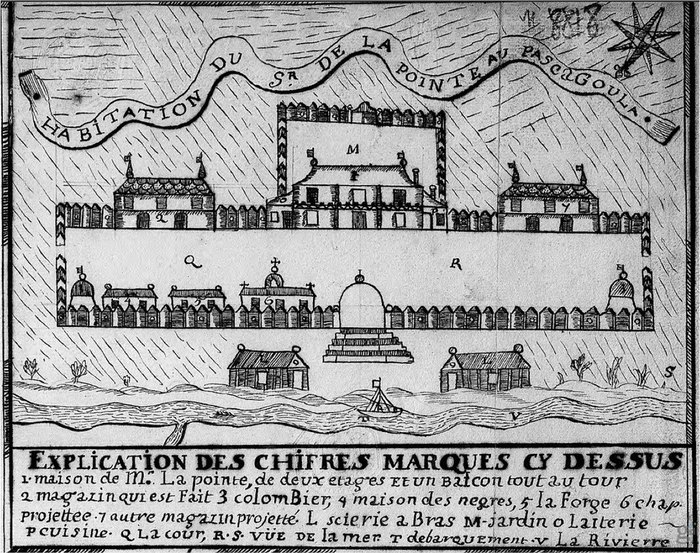 HABITATION DU Sʀ DE LA POINTE AU PASCAGOULA
M
1
2
7
Q
R
4
5
6
L
L
S
T
V
EXPLICATION DES CHIFRES MARQUES CY DESSUS
1 maison de Mr. La pointe, de deux etages et un Balcon tout au tour
2 magazin qui est Fait 3 colomBier, 4 maison des negres, 5 la Forge 6 chap.
projettee . 7 autre magazin projetté. L scierie a Bras M. Jardin o Laiterie
P cuisine. Q La cour, R. S. VÜE DE la mer T debarquement. V La Rivierre